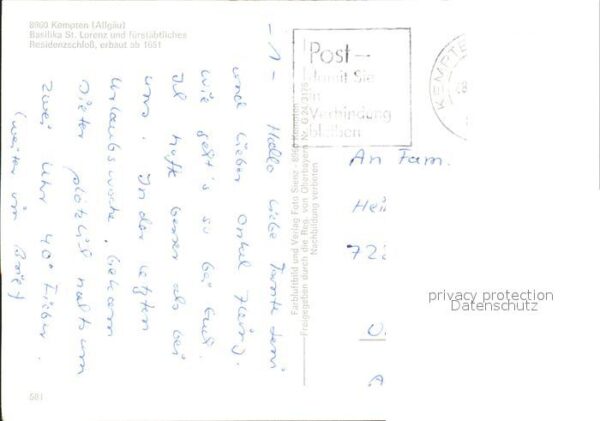 8960 Kempten (Allgäu)
Basilika St. Lorenz und fürstäbtliches
Residenzschloß, erbaut ab 1651
- 1 -
Hallo liebe Tante
und lieber Onkel Heinz.
wie geht's so bei Euch.
Ich hoffe besser als bei
uns. In der letzten
Urlaubswoche, bekam
Dieter plötzlich nachts um
zwei Uhr 40° Fieber.
(weiter im Brief)
Post —
damit Sie
in
Verbindung
bleiben
KEMPTE
Farbluftbild und Verlag Foto Sienz · 8960 Kempten
Freigegeben durch die Reg. von Oberbayern Nr. G 24 3175
Nachbildung verboten
An Fam.
Hei
72
privacy protection
Datenschutz
581